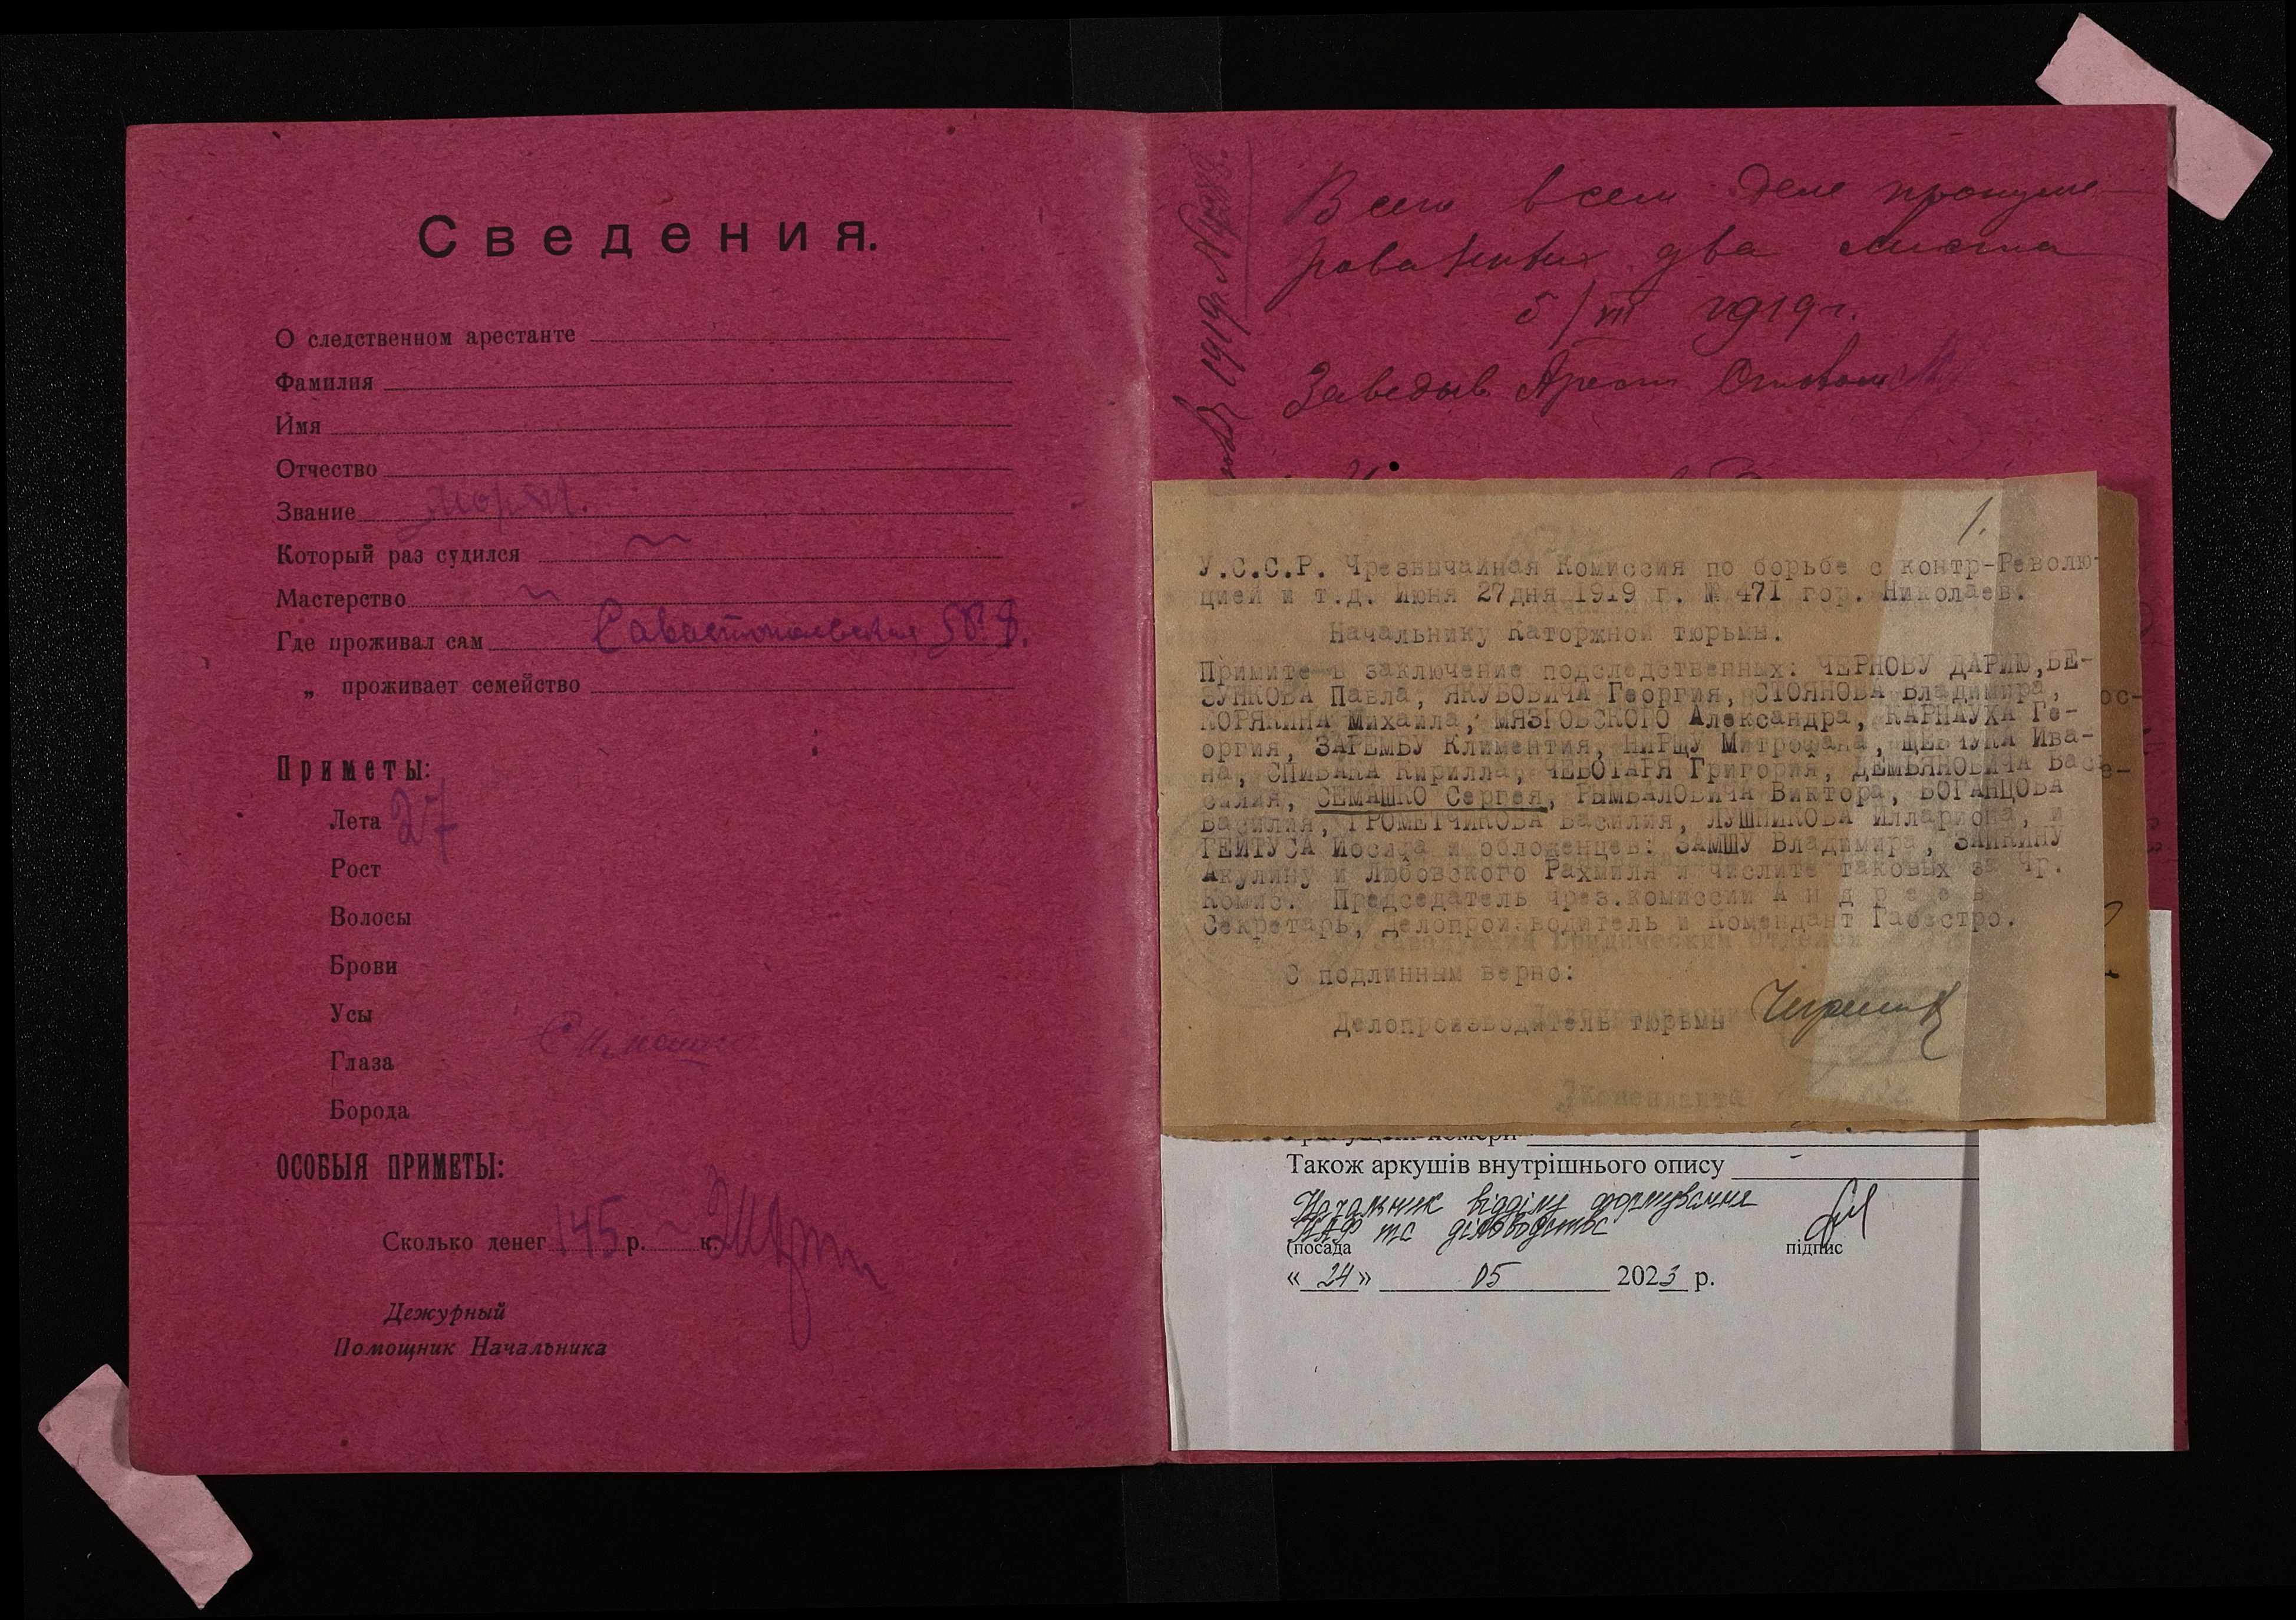 Сведения.
О следственном арестанте
Фамилия
Имя
Отчество
Звание моряк.
Который раз судился ~
Мастерство ~
Где проживал сам Севастопольская
„ проживает семейство
Приметы:
Лета 27
Рост
Волосы
Брови
Усы
Глаза
Борода
ОСОБЫЯ ПРИМЕТЫ:
Сколько денег 145 р. ~ к.
Дежурный
Помощник Начальника
Всего в сем деле пронуме-
рованных два листа
5/VIII 1919 г.
Заведыв Арест Столом
1.
У.С.С.Р. Чрезвычайная Комиссия по борьбе с контр-Револю-
цией и т.д. Июня 27 дня 1919 г. № 471 гор. Николаев.
Начальнику Каторжной тюрьмы.
Примите в заключение подследственных: ЧЕРНОВУ ДАРИЮ, БЕ-
ЗУНКОВА Павла, ЯКУБОВИЧА Георгия, СТОЯНОВА Владимира,
КОРЯКИНА Михаила, МЯЗГОВСКОГО Александра, КАРНАУХА Ге-
оргия, ЗАРЕМБУ Климентия, НИРЩУ Митрофана, ШЕВЧУКА Ива-
на, СПИВАКА Кирилла, ЧЕБОТАРЯ Григория, ДЕМЬЯНОВИЧА Ва-
силия, СЕМАШКО Сергея, РЫМБАЛОВИЧА Виктора, БОГАНЦОВА
Василия, ГРОМЕТЧИКОВА Василия, ЛУШНИКОВА Иллариона, и
ГЕЙТУСА Иосифа и обложенцев: ЗАМШУ Владимира, ЗАИКИНУ
Акулину и Любовского Рахмиля и числите таковых за Чр.
Комис. Председатель чрез.комиссии Андреев
Секретарь, делопроизводитель и Комендант Гаоестро.
С подлинным верно:
Делопроизводитель тюрьмы
Також аркушів внутрішнього опису -
Начальник відділу формування
НАФ та діловодства
(посада підпис
« 24 » 05 2023 р.